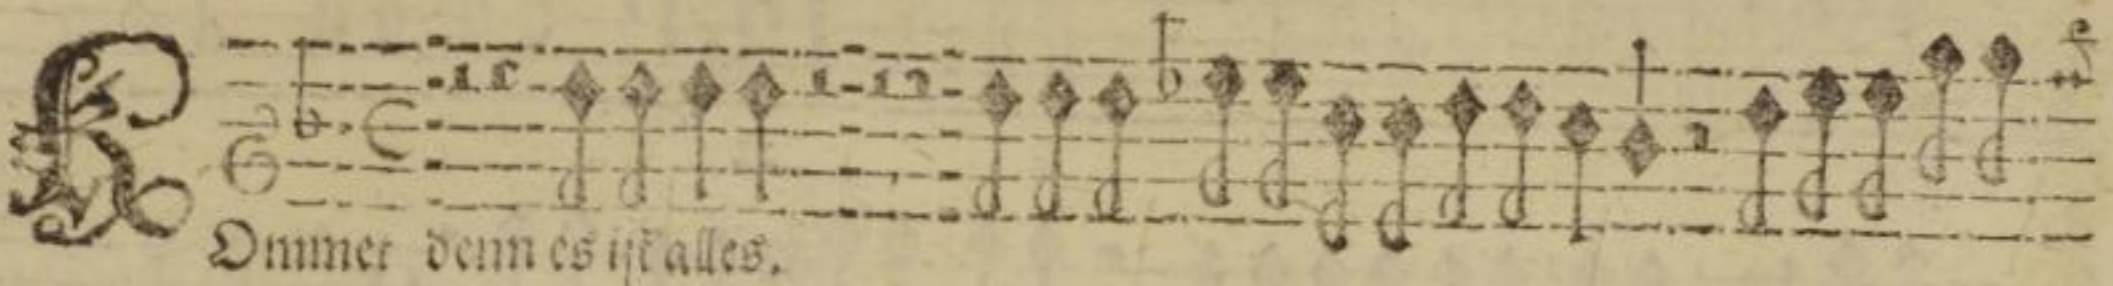 KOmmet denn es ist alles.